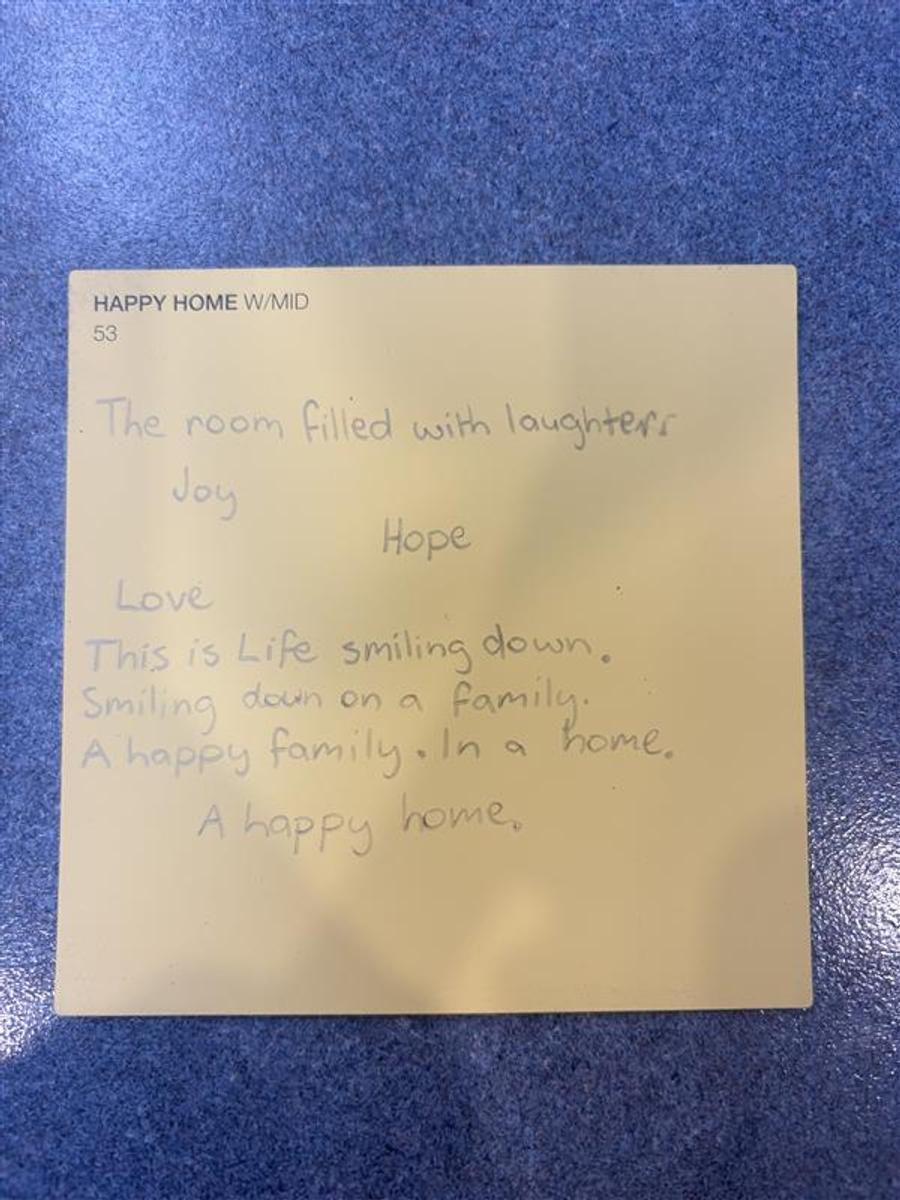 HAPPY HOME W/MID
53
The room filled with laughters
Joy
Hope
Love
This is Life smiling down.
Smiling down on a family.
A happy family. In a home.
A happy home.